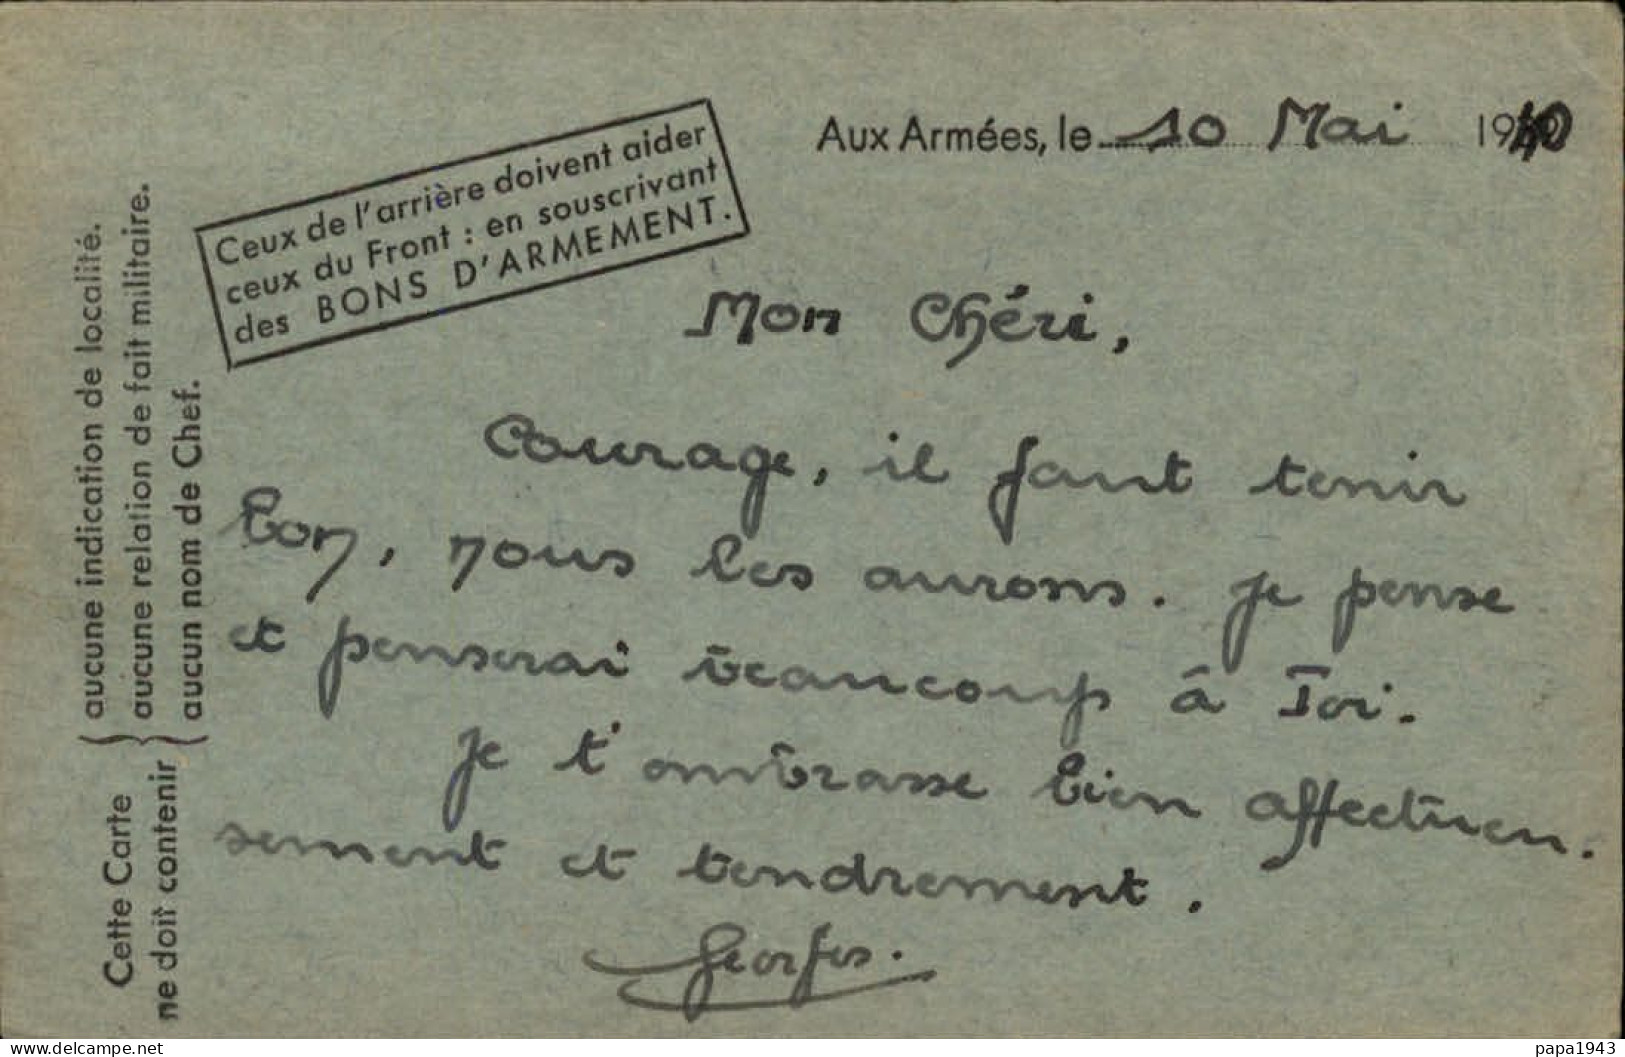 Aux Armées, le 10 Mai 1940
Ceux de l'arrière doivent aider
ceux du Front : en souscrivant
des BONS D'ARMEMENT.
Mon Chéri,
Courage, il faut tenir
bon, nous les aurons. Je pense
et penserai beaucoup à Toi.
Je t'embrasse bien affectueu.
sement et tendrement.
Georges.
Cette Carte
ne doit contenir
aucune indication de localité.
aucune relation de fait militaire.
aucun nom de Chef.
www.delcampe.net
papa1943